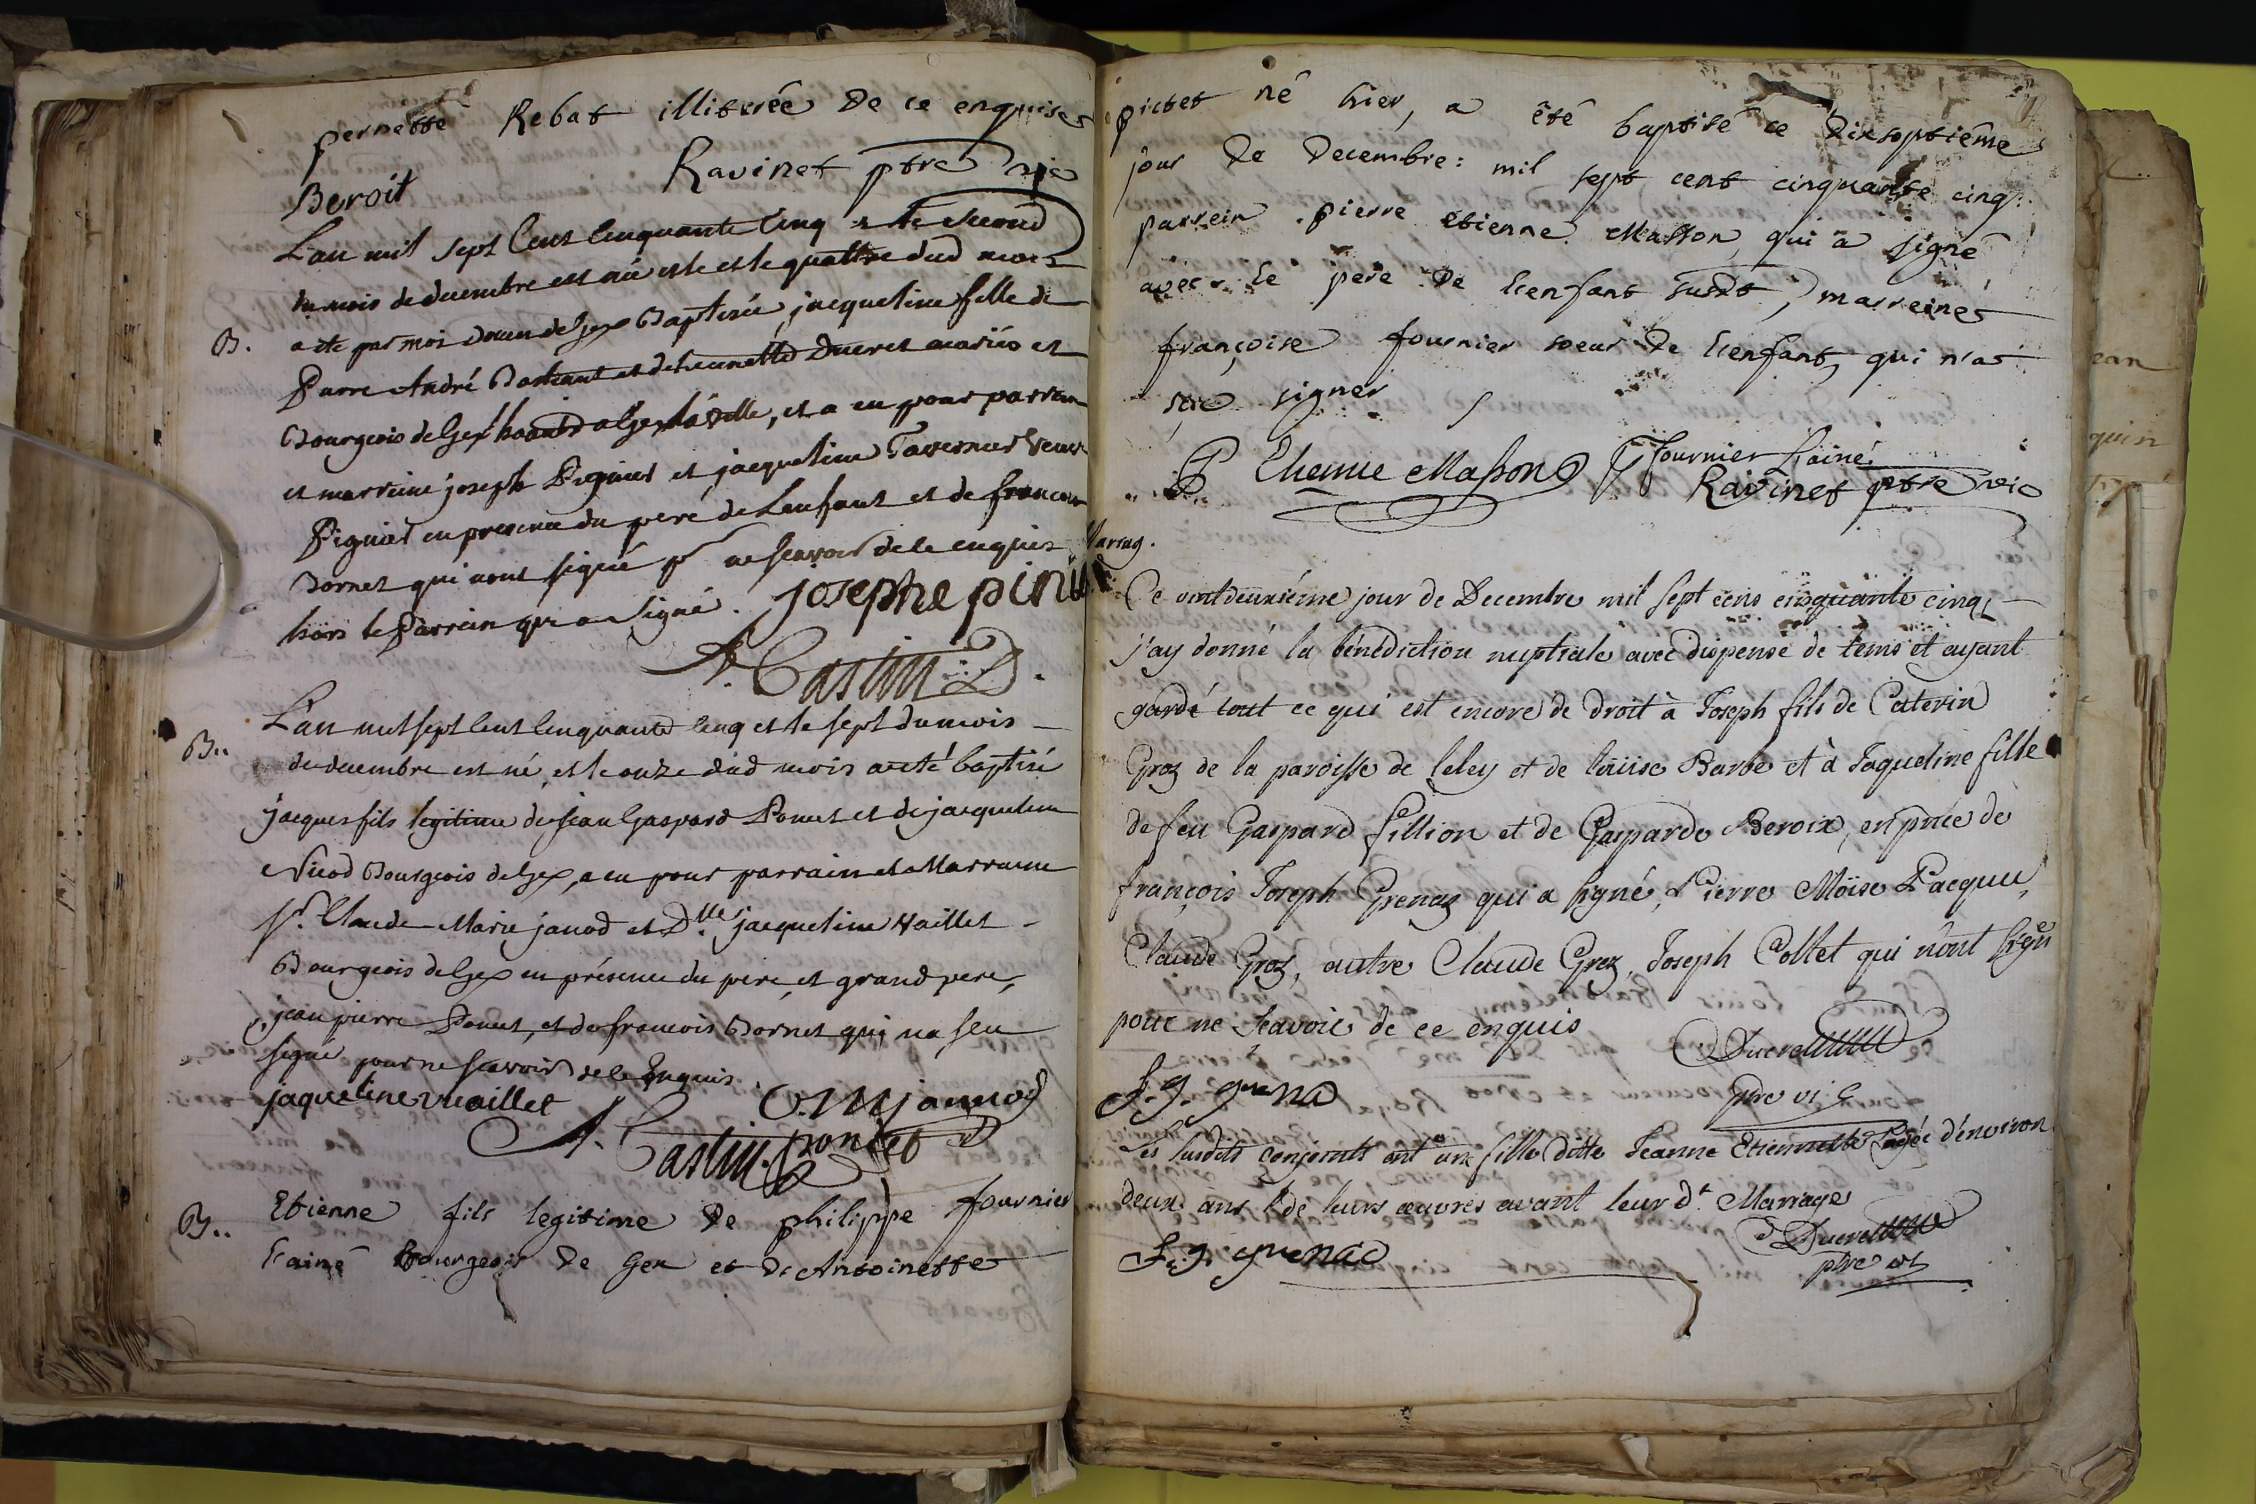 pernette Rebat illiterée De ce enquises
Ravinet ptre vic
Beroit
L'an mil sept Cent Cinquante Cinq et le second
du mois de decembre est née et le quattre dud mois
B. a été par moi Doien de Gex Baptisée jacqueline fille de
Pierre André Bastiant et de jeannette Ducret mariés et
Bourgeois de Gex habitants a Gex la ville, et a eu pour parrein
et marreine joseph Pignier et jacqueline Tavernier veuve
Pignier en presence du pere de L'enfant et de francois
Bornet qui n'ont signé pr ne scavoir de ce enquis
hors le Parrein qui a signé. josephe pinier
A. Castin D.
B.. L'an mil sept Cent Cinquante Cinq et le sept du mois
de decembre est né, et le onze dud mois a eté baptisé
jacques fils legitime de jean Gaspard Poncet et de jacqueline
Nicod Bourgeois de Gex, a eu pour parrain et Marraine
Sr. Claude Marie janod et Dlle jacqueline Vuaillet
Bourgeois de Gex en présence du pere, et grand pere,
jean pierre Poncet, et de francois Bornet qui na seu
signé pour ne scavoir de ce Enquis.
jaqueline vuaillet C. M jannod
A. Castin. poncet D
B.. Etienne fils legitime de philippe fournier
l'ainé Bourgeois de Gex et de Antoinette
pictet né hier, a été baptisé ce dixseptiême
jour de Decembre: mil sept cent cinquante cinq:
parrein pierre etienne Masson, qui a signé
avec le pere de l'enfant susdt, marreines
françoise fournier soeur de l'enfant, qui n'a
sçu signer
P Etienne Masson P fournier l'ainé
Ravinet ptre vic
Mariag.
Ce vintdeuxiéme jour de Decembre mil sept cens cinquante cinq
j'ay donné la bénédiction nuptiale avec dispense de tems et ayant
gardé tout ce qui est encore de droit à Joseph fils de Caterin
Groz de la paroisse de leley et de loüise Barbe et à Jaqueline fille
de feu Gaspard fillion et de Gasparde Beroix, en pnce de
françois Joseph Grenaz qui a signé, Pierre Moïse Pacquu,
Claude Groz, autre Claude Groz, Joseph Collet qui n'ont signé
pour ne scavoir de ce enquis
Ducret
f. j. grena ptre vic
Les susdits conjoints ont une fille ditte Jeanne Etiennette agée d'environ
deux ans de leurs œuvres avant leur dt. Mariage
Ducret
f. j. grenad ptre vic